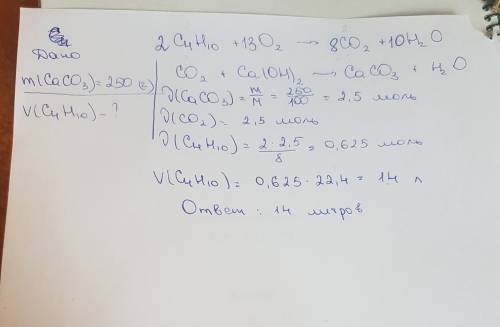 Дано
m(CaCO3) = 250 (г)
V(C4H10) - ?
2C4H10 + 13O2 → 8CO2 + 10H2O
CO2 + Ca(OH)2 → CaCO3 + H2O
ν(CaCO3) = m/M = 250/100 = 2,5 моль
ν(CO2) = 2,5 моль
ν(C4H10) = 2·2,5/8 = 0,625 моль
V(C4H10) = 0,625·22,4 = 14 л
Ответ: 14 литров